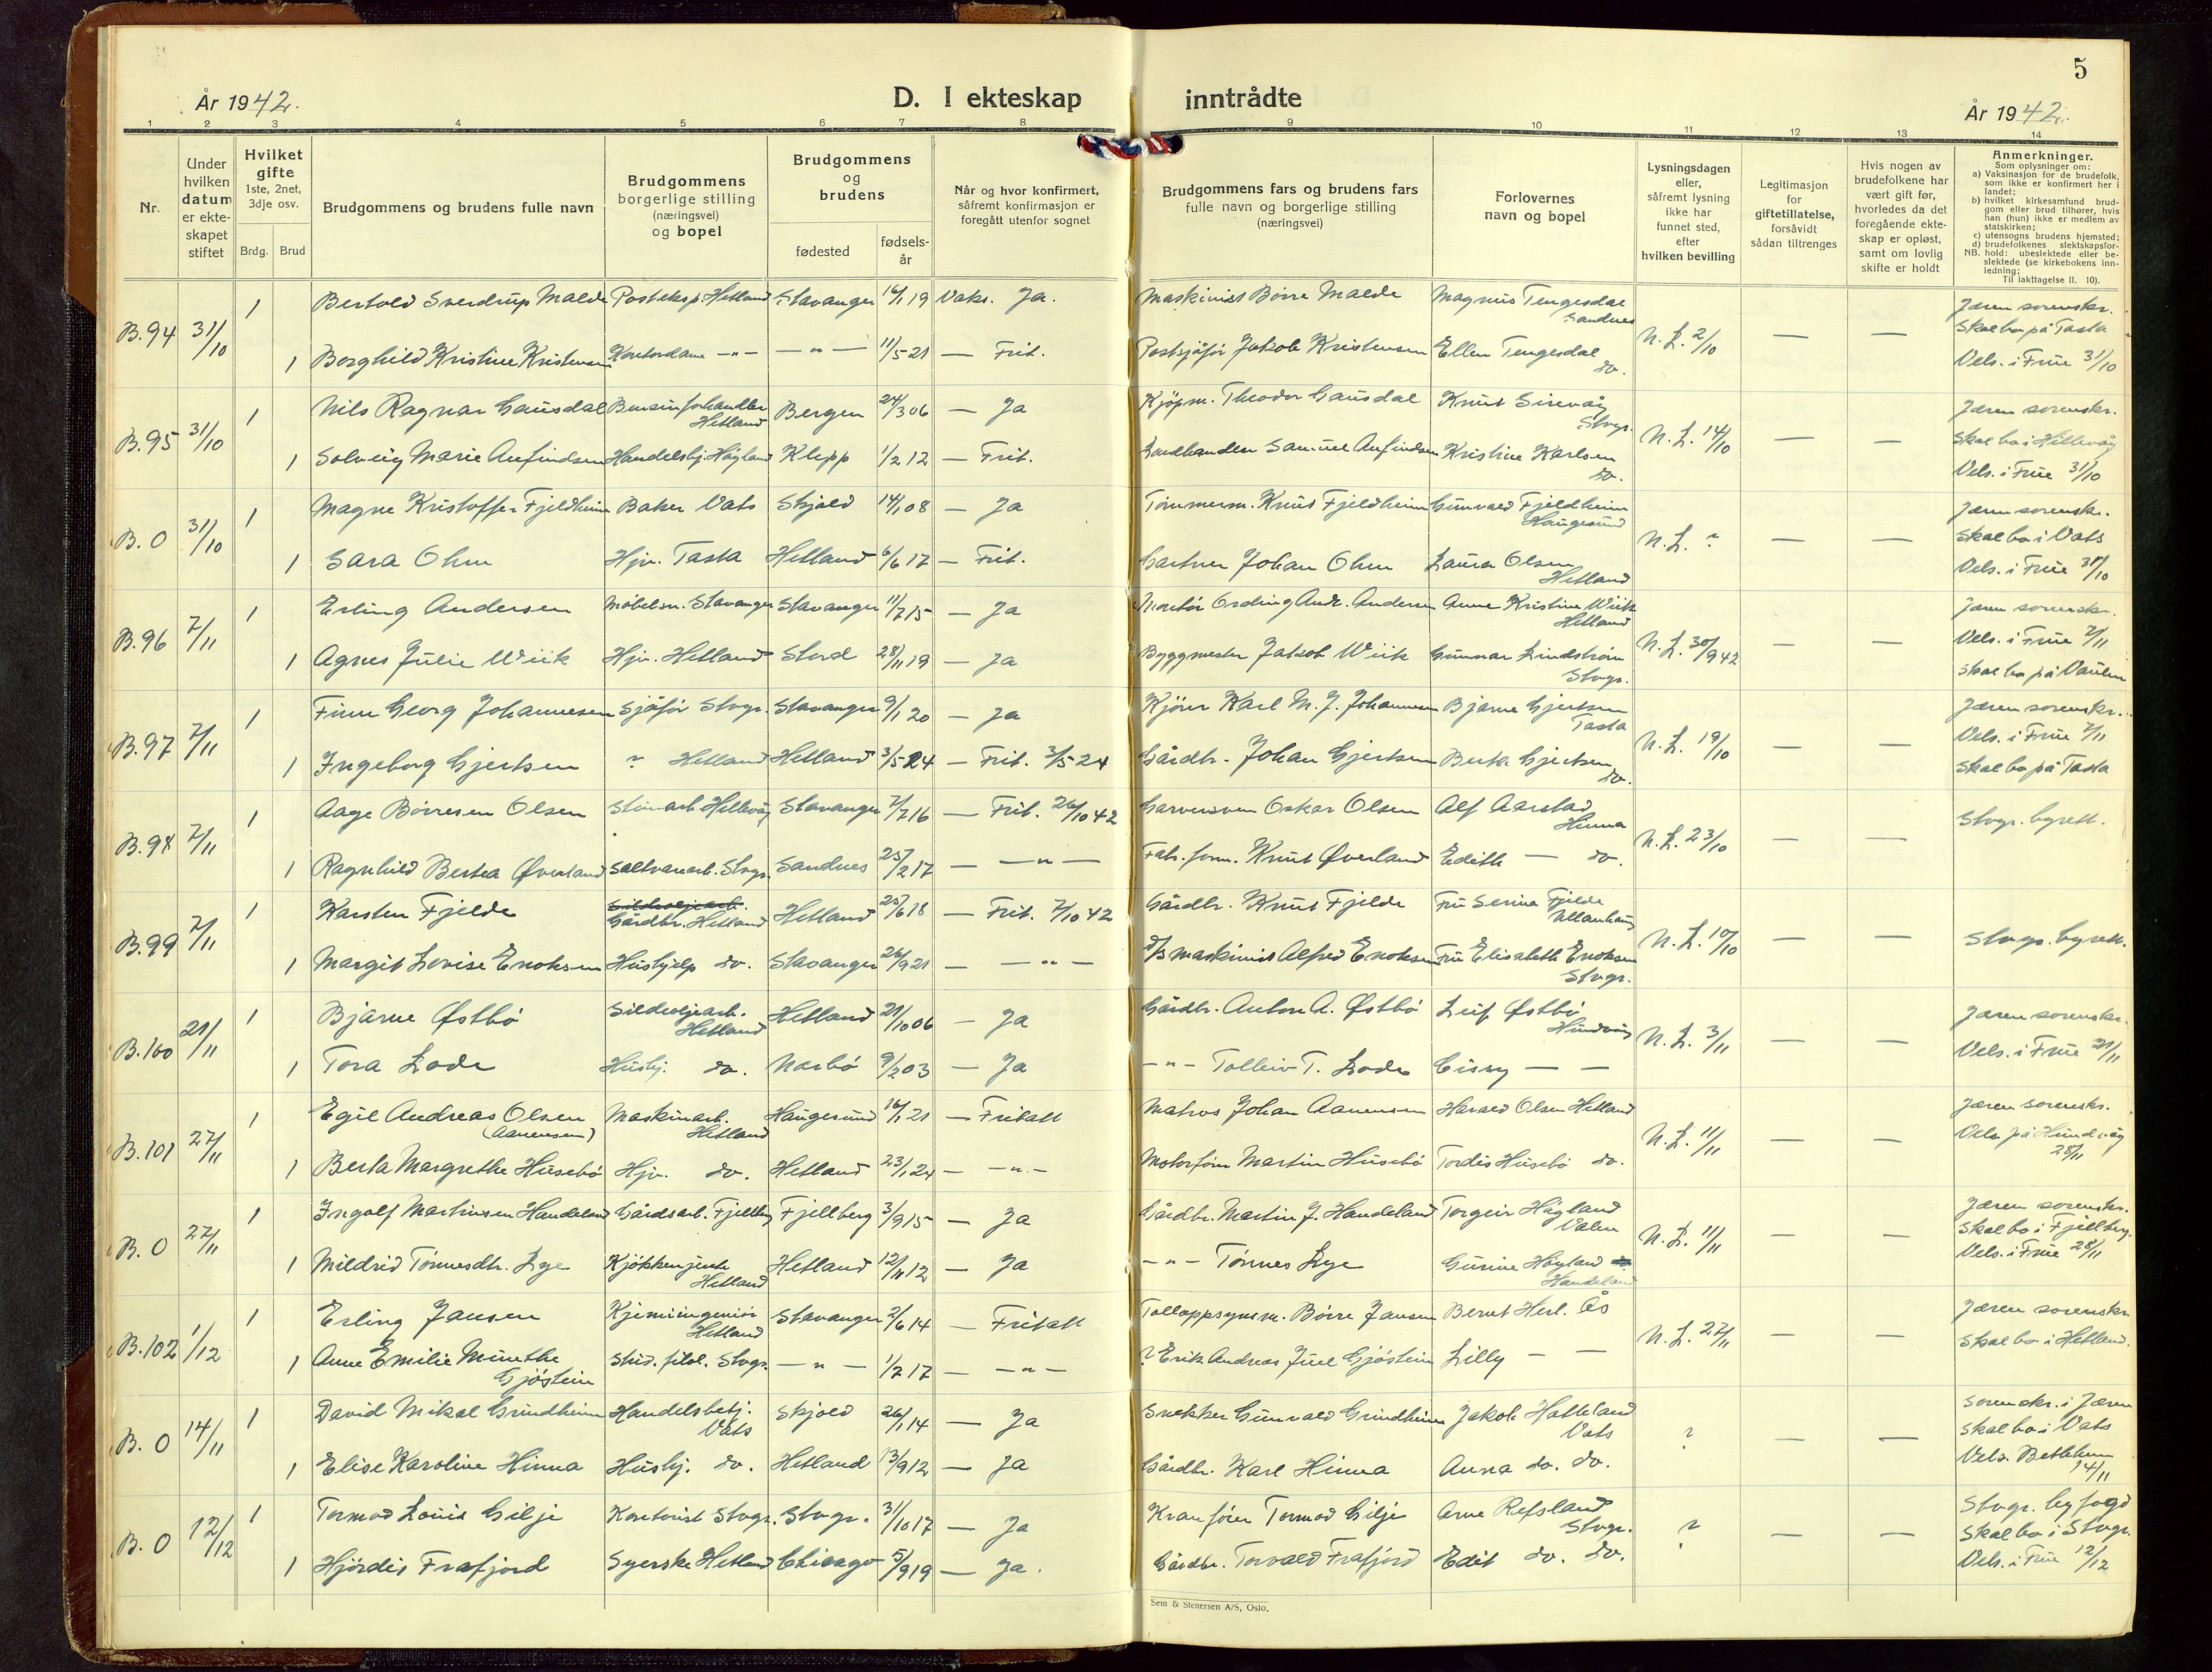 5
År 1942.
D. I ekteskap inntrådte
År 1942.
1 2 3 4 5 6 7 8 9 10 11 12 13 14
Nr.
Under hvilken datum er ekte-skapet stiftet
Hvilket gifte 1ste, 2net, 3dje osv.
Brdg. Brud
Brudgommens og brudens fulle navn
Brudgommens borgerlige stilling (næringsvei) og bopel
Brudgommens og brudens
fødested fødsels-år
Når og hvor konfirmert, såfremt konfirmasjon er foregått utenfor sognet
Brudgommens fars og brudens fars fulle navn og borgerlige stilling (næringsvei)
Forlovernes navn og bopel
Lysningsdagen eller, såfremt lysning ikke har funnet sted, efter hvilken bevilling
Legitimasjon for giftetillatelse, forsåvidt sådan tiltrenges
Hvis nogen av brudefolkene har vært gift før, hvorledes da det foregående ekte-skap er opløst, samt om lovlig skifte er holdt
Anmerkninger.
Som oplysninger om:
a) Vaksinasjon for de brudefolk, som ikke er konfirmert her i landet;
b) hvilket kirkesamfund brud-gom eller brud tilhører, hvis han (hun) ikke er medlem av statskirken;
c) utensogns brudens hjemsted;
d) brudefolkenes slektskapsfor-
NB. hold: ubeslektede eller be-slektede (se kirkebokens inn-ledning;
Til iakttagelse II. 10).
B.94 31/10 1 Bertold Sverdrup Malde Posteksp. Hetland Stavanger 16/1 19 Vaks. Ja. Maskinist Børre Malde Magnus Tengesdal Sandnes N.L. 2/10 — — Jæren sorenskr. Skal bo på Tasta Vels. i Frue 31/10
1 Borghild Kristine Kristensen Kontordame —"— —"— 11/5 21 — Frit. Postsjåfør Jakob Kristensen Ellen Tengesdal do.
B.95 31/10 1 Nils Ragnar Gausdal Bensinforhandler Hetland Bergen 24/3 06 — Ja Kjøpm. Theodor Gausdal Knut Sirevåg Stvgr. N.L. 14/10 — — Jæren sorenskr. Skal bo i Hillevåg Vels. i Frue 31/10
1 Solveig Marie Anfindsen Handelsbj. Høyland Klepp 1/2 12 — Frit. Landhandler Samuel Anfindsen Kristine Karlsen do.
B. 0 31/10 1 Magne Kristoffer Fjeldheim Baker Vats Skjold 14/1 08 — Ja Tømmerm. Knut Fjeldheim Gunvald Fjeldheim Haugesund N.L. ? — — Jæren sorenskr. Skal bo i Vats Vels. i Frue 31/10
1 Sara Ohm Hjv. Tasta Hetland 6/6 17 — Frit. Gartner Johan Ohm Laura Olsen Hetland
B.96 7/11 1 Erling Andersen Møbelsn. Stavanger Stavanger 11/7 15 — Ja Montør Ording Andr. Andersen Anne Kristine Wiik Hetland N.L. 30/9 42 — — Jæren sorenskr. Vels. i Frue 7/11 Skal bo på Vaulen
1 Agnes Julie Wiik Hjv. Hetland Stord 28/11 19 — Ja Byggmester Jakob Wiik Gunnar Lindstrøm Stvgr.
B.97 7/11 1 Finn Georg Johannesen Sjåfør Stvgr. Stavanger 9/1 20 — Ja Kjører Karl M. J. Johannesen Bjarne Gjertsen Tasta N.L. 19/10 — — Jæren sorenskr. Vels. i Frue 7/11 Skal bo på Tasta
1 Ingeborg Gjertsen ? Hetland Hetland 3/5 24 — Frit. 3/5 24 Gårdbr. Johan Gjertsen Berta Gjertsen do.
B.98 7/11 1 Aage Børresen Olsen Hillevåg Stavanger 7/7 16 — Frit. 26/10 42 Garversven Oskar Olsen Alf Aarstad Hinna N.L. 23/10 — — Stvgr. byrett.
1 Ragnhild Bertea Øverland Stvgr. Sandnes 25/2 17 — —"— Fab. form. Knut Øverland Edith — do.
B.99 7/11 1 Karsten Fjelde Sildoljearb. Gårdbr. Hetland Hetland 25/6 18 — Frit. 7/10 42 Gårdbr. Knut Fjelde Fru Serina Fjelde Ullanhaug N.L. 10/10 — — Stvgr. byrett.
1 Margit Lovise Enoksen Hushjelp do. Stavanger 26/9 21 — —"— D/S maskinist Alfred Enoksen Fru Elisabeth Enoksen Stvgr.
B.100 21/11 1 Bjarne Østbø Sildoljearb. Hetland Hetland 21/10 06 — Ja Gårdbr. Anton A. Østbø Leif Østbø Hundvåg N.L. 3/11 — — Jæren sorenskr. Vels. i Frue 21/11
1 Tora Lode Hushj. do. Nærbø 9/2 03 — Ja —"— Tolleiv T. Lode Cissy — —
B.101 27/11 1 Egil Andreas Olsen (Aanensen) Maskinarb. Hetland Haugesund 16/1 21 — Fritatt Matros Johan Aanensen Harald Olsen Hetland N.L. 11/11 — — Jæren sorenskr. Vels. på Hundvåg 28/11
1 Berta Margrethe Husebø Hjv. do. Hetland 23/1 24 — —"— Motorfører Martin Husebø Tordis Husebø do.
B. 0 27/11 1 Ingolf Martinsen Handeland Gårdsarb. Fjellberg Fjellberg 3/9 15 — Ja Gårdbr. Martin J. Handeland Torgeir Høyland Valen N.L. 11/11 — — Jæren sorenskr. Skal bo i Fjellberg. Vels. i Frue 28/11
1 Mildrid Tønnesdtr. Lye Kjøkkenjente Hetland Hetland 12/11 12 — Ja —"— Tønnes Lye Gurine Høyland Handeland
B.102 1/12 1 Erling Jansen Kjemiingeniør Hetland Stavanger 2/6 14 — Fritatt Tolloppsynsm. Børre Jansen Bernt Herl. Ås N.L. 27/11 — — Jæren sorenskr. Skal bo i Hetland.
1 Anne Emilie Munthe Gjøstein Stud. filol. Stvgr. —"— 1/7 17 — —"— ? Erik Andreas Juel Gjøstein Lilly — —
B. 0 14/11 1 David Mikal Grindheim Handelsbetj. Vats Skjold 26/1 14 — Ja Snekker Gunvald Grindheim Jakob Hatteland Vats ? — — Sorenskr. i Jæren Skal bo i Vats Vels. Betlehem 14/11
1 Elise Karoline Hinna Hushj. do. Hetland 13/9 12 — Ja Gårdbr. Karl Hinna Anna do. do.
B. 0 12/12 1 Tormod Louis Gilje Kontorist Stvgr. Stvgr. 31/10 17 — Ja Kranfører Tormod Gilje Arne Refsland Stvgr. ? — — Stvgr. byfogd Skal bo i Stvgr. Vels. i Frue 12/12
1 Hjørdis Frafjord Syerske Hetland Chicago 5/9 19 — Ja. Gårdbr. Torvald Frafjord Edit do. do.
Sem & Stenersen A/S, Oslo.